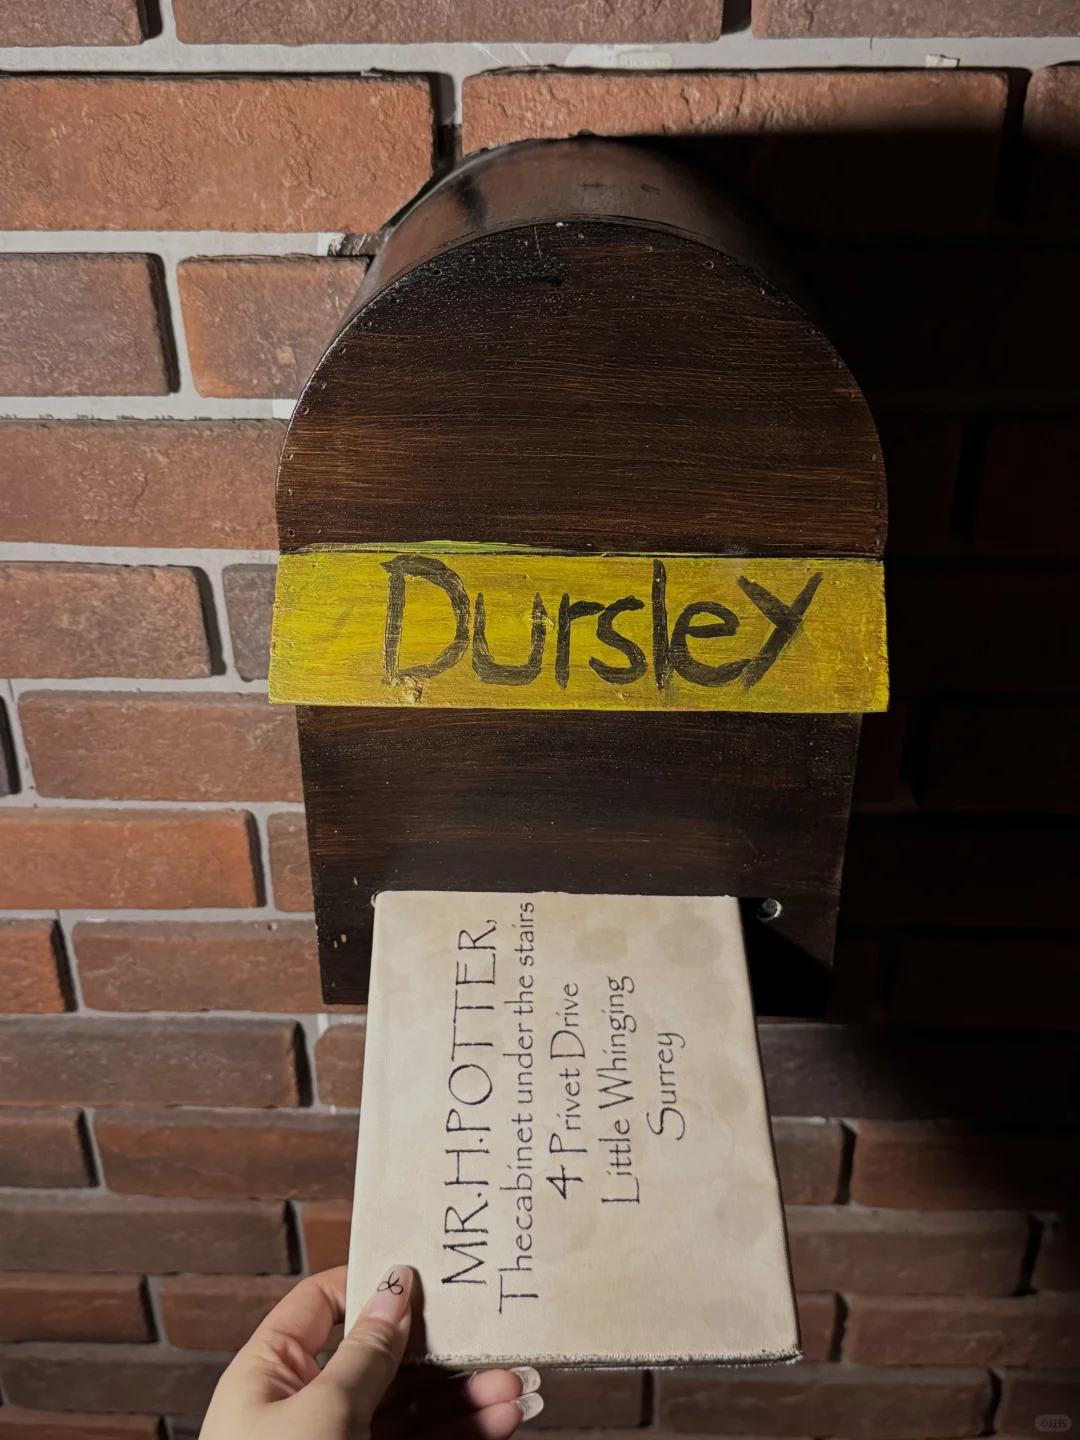 Dursley
MR.H.POTTER,
Thecabinet under the stairs
4 Privet Drive
Little Whinging
Surrey
小红书